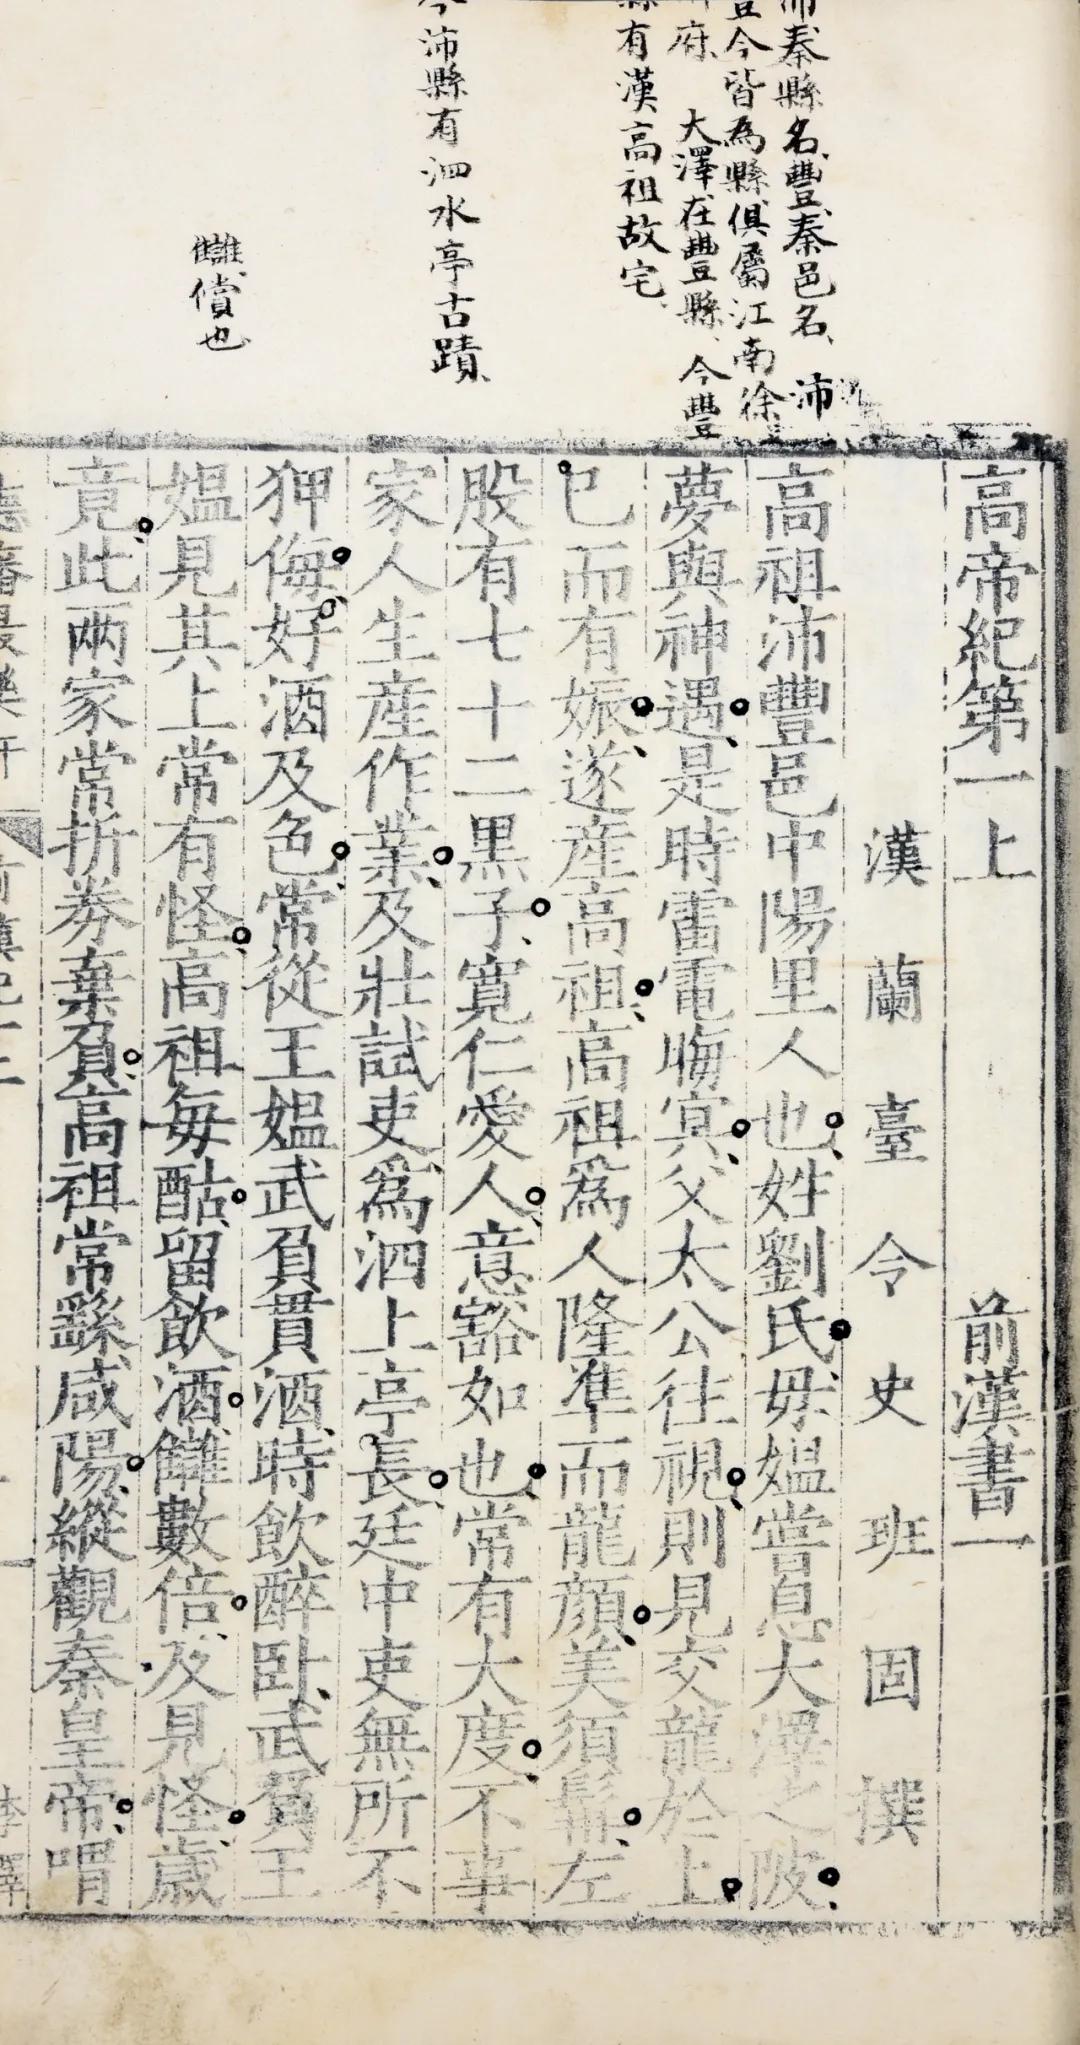 沛秦縣名豐秦邑名沛
豐今皆為縣俱屬江南徐
府大澤在豐縣今豐
縣有漢高祖故宅
今沛縣有泗水亭古蹟
讎償也
高帝紀第一上 前漢書一
漢蘭臺令史班固撰
高祖沛豐邑中陽里人也姓劉氏毋媼嘗息大澤之陂
夢與神遇是時雷電晦冥父太公往視則見交龍於上
已而有娠遂產高祖高祖爲人隆準而龍顏美須髯左
股有七十二黑子寬仁愛人意豁如也常有大度不事
家人生產作業及壯試吏爲泗上亭長廷中吏無所不
狎侮好酒及色常從王媼武負貰酒時飲醉臥武負王
媼見其上常有怪高祖每酤留飲酒讎數倍及見怪歲
竟此兩家常折券棄負高祖常繇咸陽縱觀秦皇帝喟